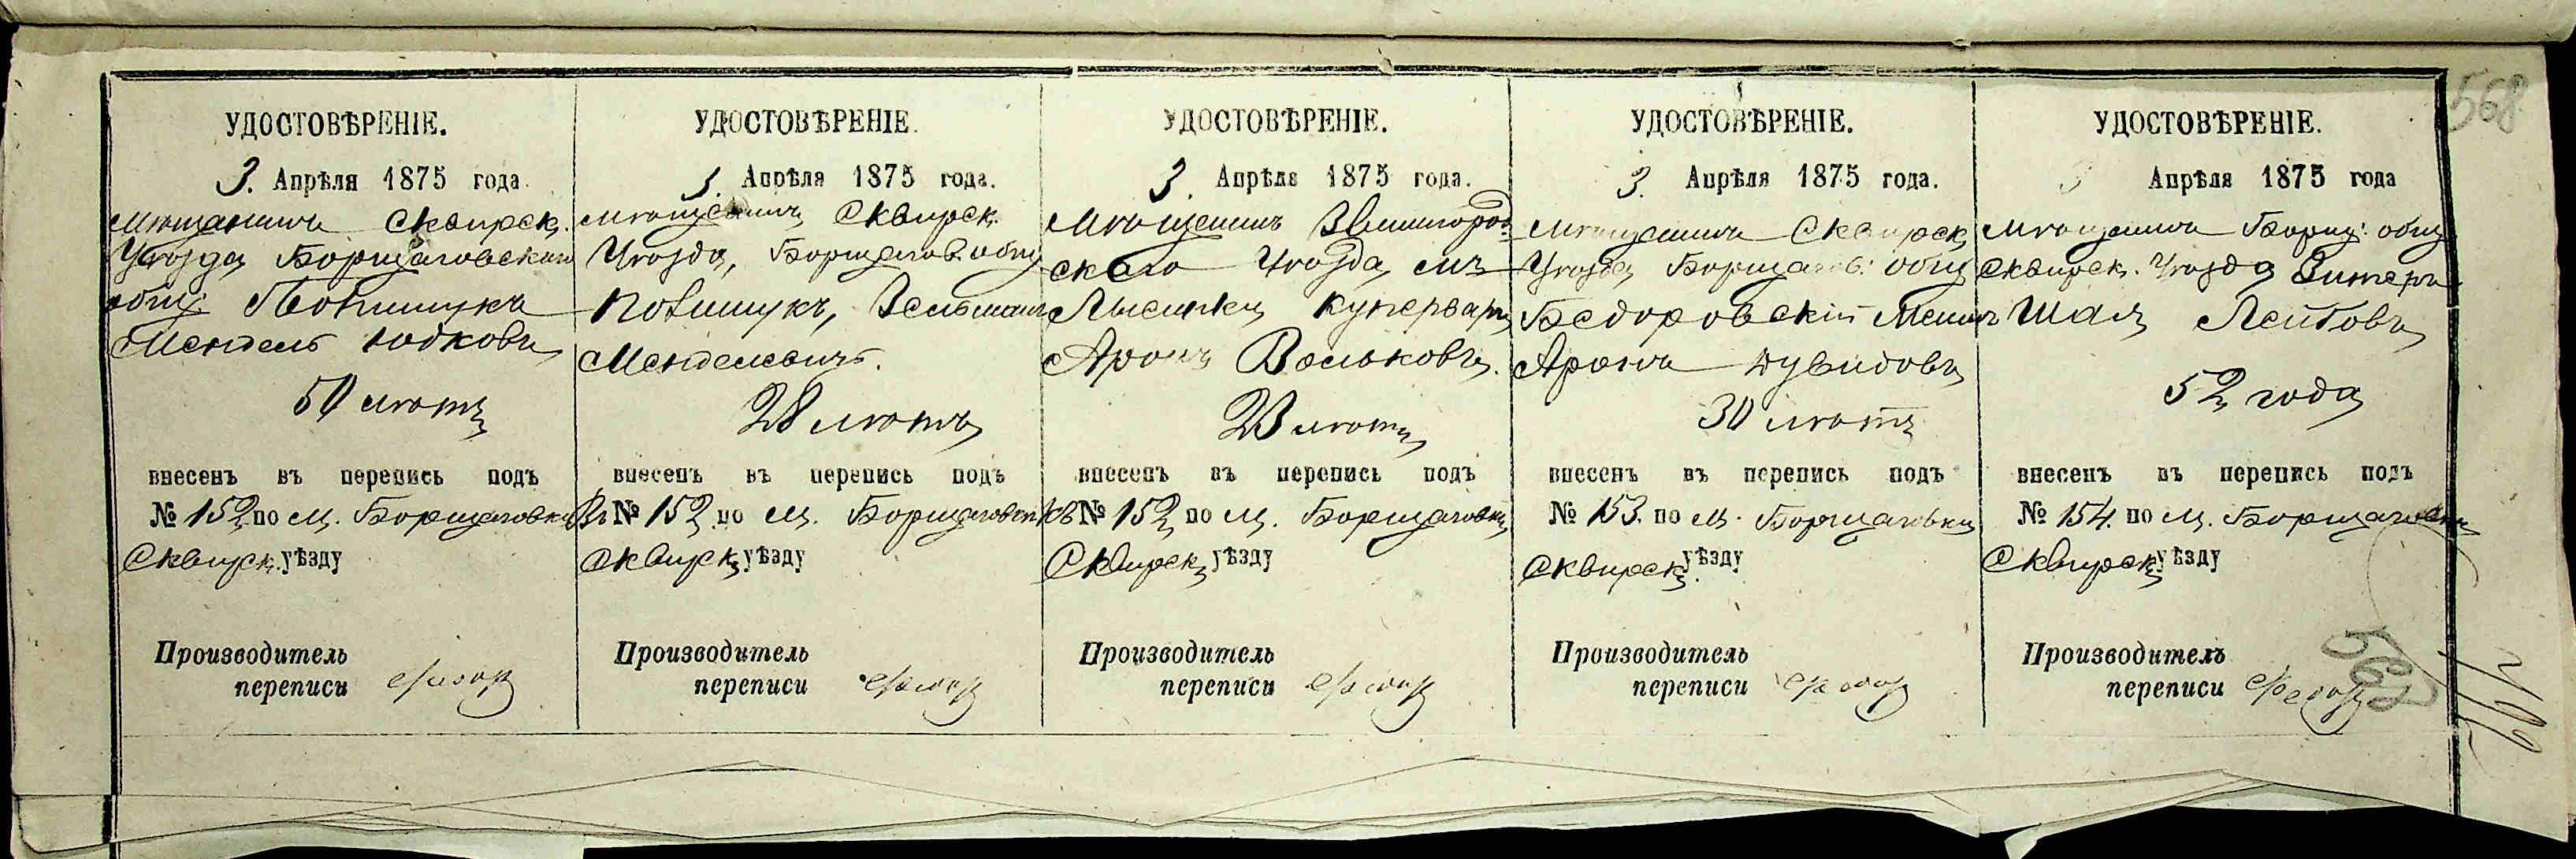 568
УДОСТОВѢРЕНІЕ.
3. Апрѣля 1875 года.
мѣщанинъ Сквирск.
Уѣзда Борщаговскаго
общ.
Мендель Юдковъ
50 лѣтъ
внесенъ въ перепись подъ
№ 152 по м. Борщаговки
Сквирск. уѣзду
Производитель
переписи
УДОСТОВѢРЕНІЕ.
3. Апрѣля 1875 года.
мѣщанинъ Сквирск.
Уѣзда, Борщагов. общ
Менделевичъ.
28 лѣтъ
внесенъ въ перепись подъ
№ 152 по м.
Сквирск. уѣзду
Производитель
переписи
УДОСТОВѢРЕНІЕ.
3. Апрѣля 1875 года.
Мѣщанинъ Звенигород-
скаго Уѣзда, мѣ
Лысянки
Аронъ Вольковъ.
23 лѣтъ
внесенъ въ перепись подъ
№ 152 по м. Борщаговки
Сквирск. уѣзду
Производитель
переписи
УДОСТОВѢРЕНІЕ.
3. Апрѣля 1875 года.
Мѣщанинъ Сквирск
Уѣзда Борщагов. общ
Бедоровскій
Аронъ Дувидовъ
30 лѣтъ
внесенъ въ перепись подъ
№ 153. по м. Борщаговки
Сквирск. уѣзду
Производитель
переписи
УДОСТОВѢРЕНІЕ.
3 Апрѣля 1875 года
Мѣщанинъ Борщ. общ
Сквирск. Уѣзда
Лейбовъ
52 года
внесенъ въ перепись подъ
№ 154. по м. Борщаговки
Сквирск. уѣзду
Производитель
переписи